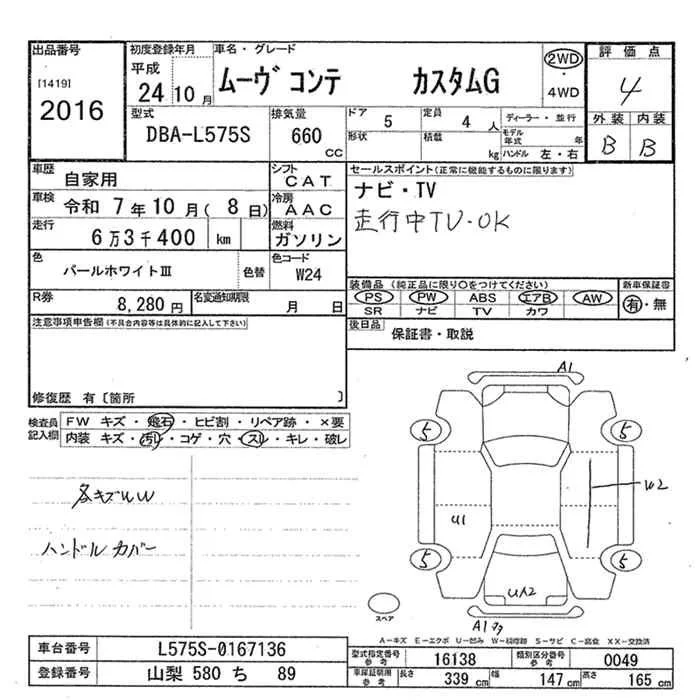 出品番号
[1419]
2016
初度登録年月
平成
24 10 月
車名・グレード
ムーヴ コンテ カスタムG
2WD
・
4WD
評価点
4
外装 内装
B B
型式
DBA-L575S
排気量
660
cc
ドア
5
定員
4 人
形状
積載
kg
ディーラー・並行
モデル
年式 年
ハンドル 左・右
車歴
自家用
シフト
CAT
車検
令和 7年10月( 8日)
冷房
AAC
走行
6万3千400 km
燃料
ガソリン
色
パールホワイトⅢ
色替
色コード
W24
R券
8,280円
名変通知期限
月 日
セールスポイント(正常に機能するものに限ります)
ナビ・TV
走行中TV・OK
装備品(純正品に限り○をつけてください)
PS PW ABS エアB AW
SR ナビ TV カワ
新車保証書
有・無
後日品
保証書・取説
注意事項申告欄(不具合内容等は具体的に記入して下さい)
修復歴 有〔箇所 〕
検査員
記入欄
FW キズ・飛石・ヒビ割・リペア跡・×要
内装 キズ・汚レ・コゲ・穴・スレ・キレ・破レ
各キズWW
ハンドルカバー
A1
5 5
W2
U1
5 5
UA2
スペア
A1
A−キズ E−エクボ U−凹み W−補修跡 S−サビ C−腐食 XX−交換済
車台番号
L575S-0167136
登録番号
山梨 580 ち 89
型式指定番号
参考
16138
類別区分番号
参考
0049
車庫証明用
参考
長さ
339 cm
幅
147 cm
高さ
165 cm